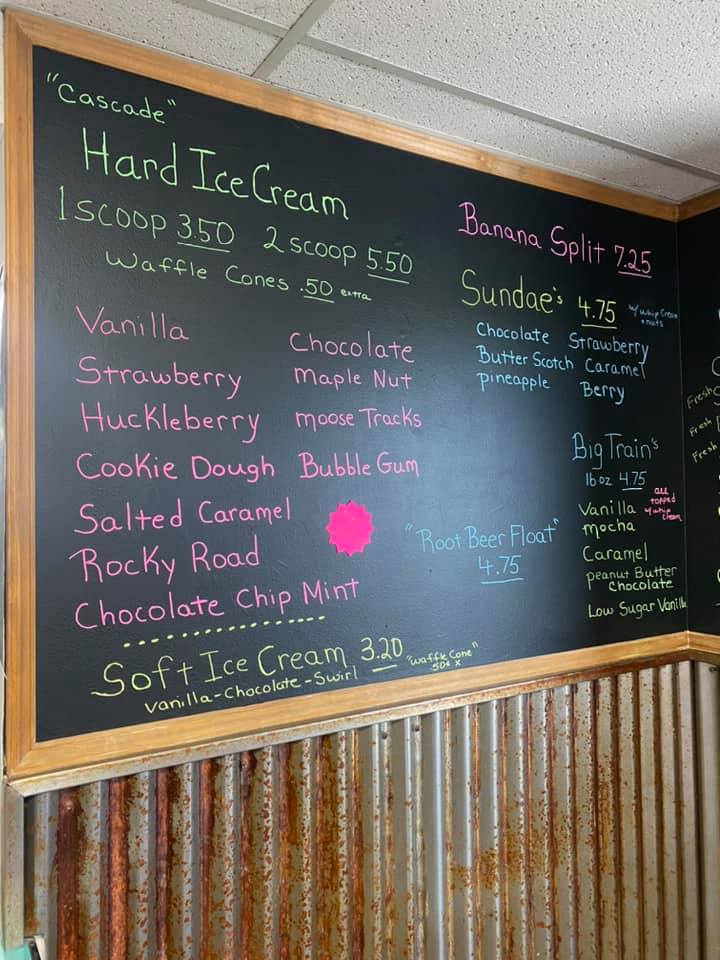 "Cascade"
Hard Ice Cream
1 scoop 3.50 2 scoop 5.50
Waffle Cones .50 extra
Vanilla
Chocolate
Strawberry
Maple Nut
Huckleberry
moose Tracks
Cookie Dough
Bubble Gum
Salted Caramel
Rocky Road
Chocolate Chip Mint
Soft Ice Cream 3.20
Vanilla-Chocolate-Swirl
"waffle Cone"
50¢ x
Banana Split 7.25
Sundae's 4.75
w/ whip Cream
+ nuts
Chocolate Strawberry
Butter Scotch Caramel
pineapple Berry
"Root Beer Float"
4.75
Big Train's
16 oz 4.75
all
topped
w/ whip
cream
Vanilla
mocha
Caramel
peanut Butter
Chocolate
Low Sugar Vanilla
Fresh
Fresh
Fresh